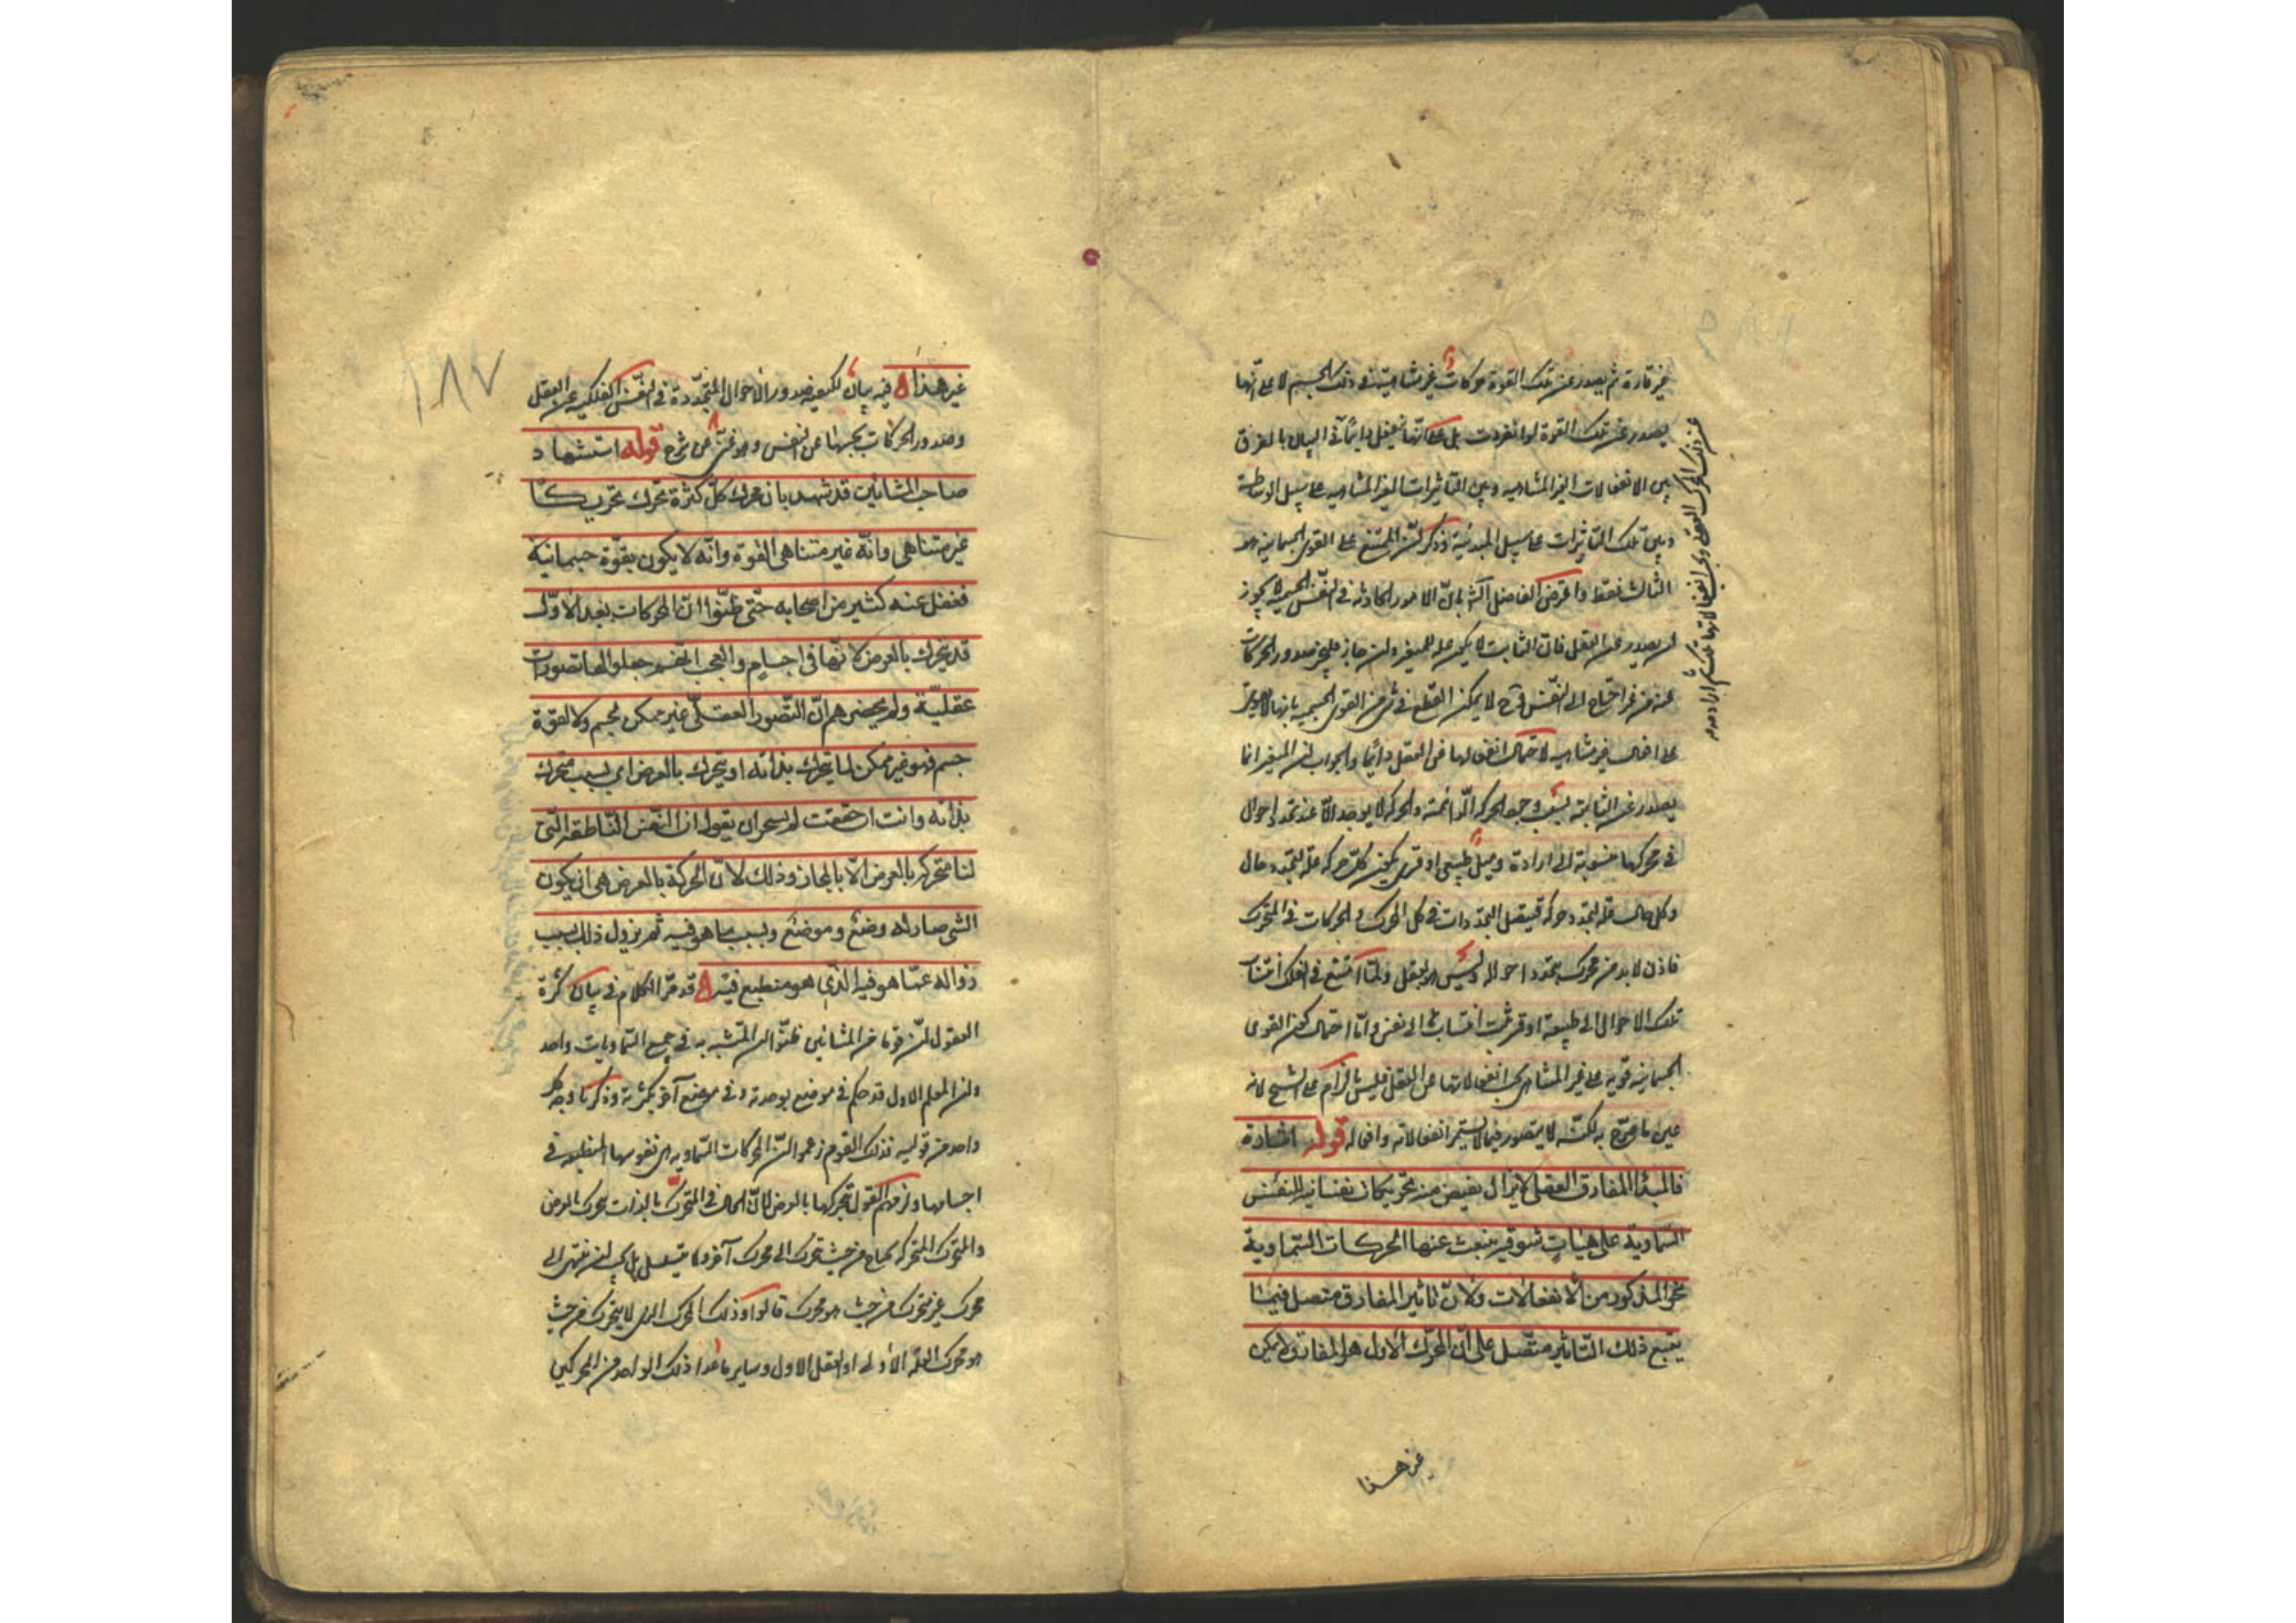 غير قارة ثم يصدر عن تلك القوة حركات غير متناهية في ذلك الجسم لا على أنها
يصدر عن تلك القوة لو انفردت بل على أنها ينفعل دائما في البيان بالفرق
بين الانفعالات الغير المتناهية وبين التأثيرات الغير المتناهية على سبيل الوساطة
وبين تلك التأثيرات على سبيل المبدئية وذكر أن الممتنع على القوى الجسمانية هو
الثالث فقط واعترض الفاضل الش بأن الأمور الحادثة في النفس الجسمية لا يجوز
أن يصدر عن العقل فان الثابت لا يكون علة للمتغير وان جاز فليجز صدور الحركات
عنه من غير احتياج الى النفس وح لا يمكن القطع في شئ من القوى الجسمية بانها لا تقوى
على افعال غير متناهية لاحتمال انفعالها من العقل دائما والجواب أن المتغير انما
يصدر عن الثابت بسبب الحركة الدائمة والحركة لا يوجد الا عند تجدد احوال
في محركها منسوبة الى ارادة وميل طبيعي او قسري يكون كل حركة علة لتجدد حال
وكل حال علة لتجدد حركة فيتصل التجددات في كل المحرك والحركات في المتحرك
فاذن لا بد من محرك يتجدد احواله وليس هو بعقل ولما امتنع في الفلك انتساب
تلك الاحوال الى طبيعة او قسر ثبت انتسابها الى نفس واما احتمال كون القوى
الجسمانية قوية على غير المتناهي بحسب انفعالاتها عن العقل فليس بالزام على الشيخ لانه
عين ما صرح به لكنه لا يتصور فيما لا يستمر انفعالاته وافعاله قوله اشارة
فالمبدأ المفارق العقلي لا يزال يفيض منه تحريكات نفسانية للنفس
السماوية على هيات شوقية ينبعث عنها الحركات السماوية
نحو المذكور من الانفعالات ولان تاثير المفارق متصل فيما
يتبع ذلك التاثير متصل على أن المحرك الاول هو المفارق ولا يمكن
غير هذا
غير هذا فيه بيان لكيفية صدور الاحوال المتجددة في النفس الفلكية عن العقل
وصدور الحركات بحسبها عن النفس وهو غني عن شرح قوله استشهاد
صاحب المشائين قد شهد بان محرك كل كرة تحرك تحريكا
غير متناهى وانه غير متناهى القوة وانه لا يكون بقوة جسمانية
فغفل عنه كثير من اصحابه حتى ظنوا ان المحركات بعد الاول
قد يتحرك بالعرض لانها في اجسام والعجب انهم جعلوا لها تصورات
عقلية ولم يحضرهم ان التصور العقلى غير ممكن لجسم ولا لقوة
جسم فهو غير ممكن لما يتحرك بذاته او يتحرك بالعرض اي بسبب متحرك
بذاته وانت ان حققت لم تستجز ان يقول ان النفس الناطقة التى
لنا متحركة بالعرض الا بالمجاز وذلك لان الحركة بالعرض هى ان يكون
الشئ صار له وضع وموضع بسبب ما هو فيه ثم يزول ذلك بسبب
زواله عما هو فيه الذى هو منطبع فيه قد مر الكلام في بيان كثرة
العقول لان قوما من المشائين ظنوا ان المتشبه به في جميع السماويات واحد
وان المعلم الاول قد حكم في موضع بوحدته وفي موضع آخر بكثرته وذكرنا وجه كل
واحد من قوليه فذلك القوم زعموا ان المحركات السماوية هى نفوسها المنطبعة في
اجسامها ولزمهم القول بتحركها بالعرض لان الحال في المتحرك بالذات متحرك بالعرض
والمتحرك المتحرك يحتاج من حيث تحرك الى محرك آخر ولا يتسلسل بل يجب ان ينتهى الى
محرك غير متحرك من حيث هو محرك قالوا وذلك المحرك الذى لا يتحرك من حيث
هو محرك العلة الأولى او العقل الاول وساير ما عدا ذلك الواحد من المحركين